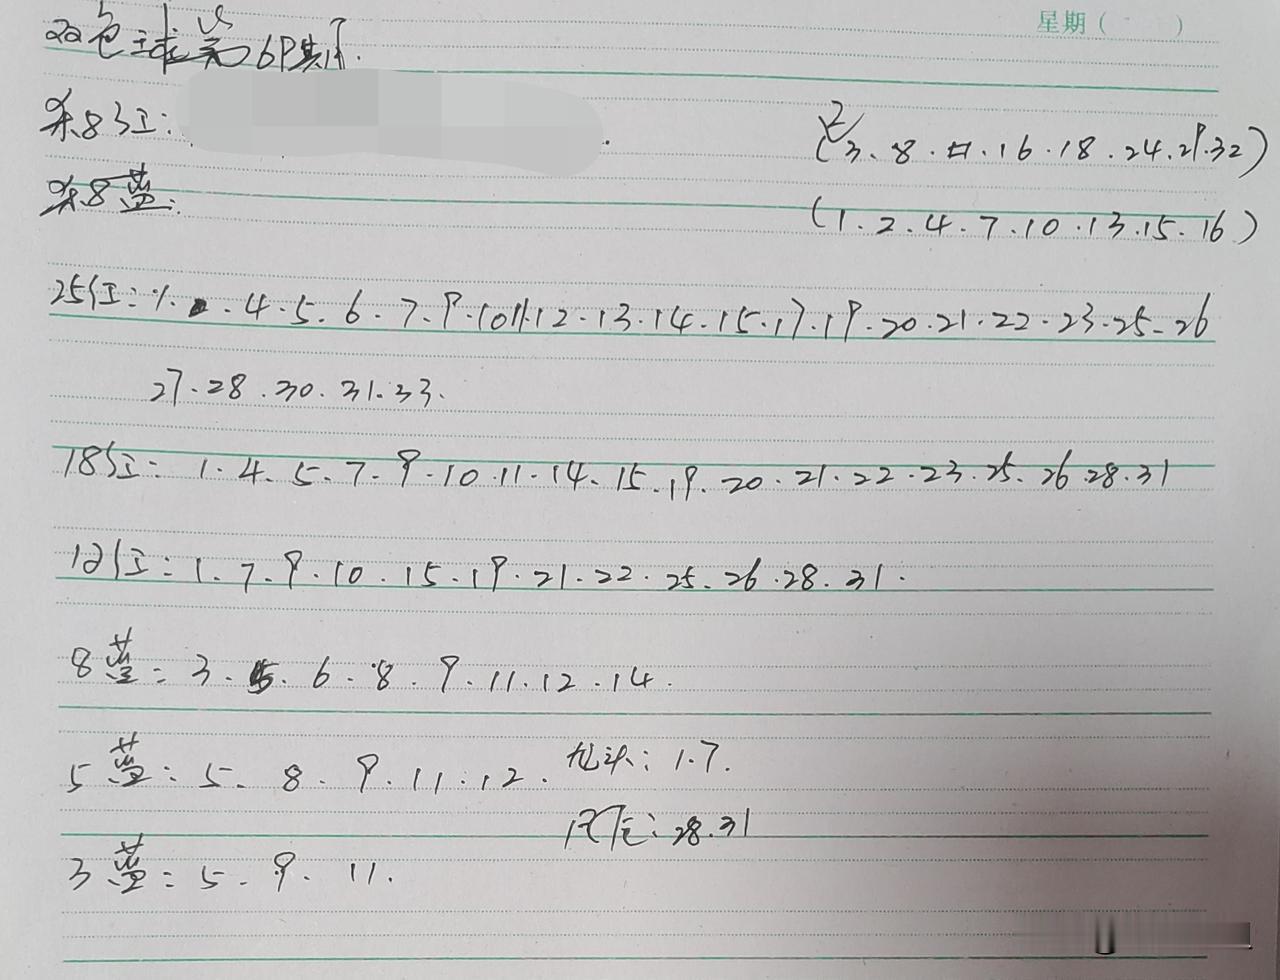 星期（ ）
双色球第69期
杀8红：
(3.8.16.18.24.29.32)
杀8蓝：
(1.2.4.7.10.13.15.16)
25红：1.4.5.6.7.9.10.11.12.13.14.15.17.19.20.21.22.23.25.26
27.28.30.31.33.
18红：1.4.5.7.9.10.11.14.15.19.20.21.22.23.25.26.28.31
12红：1.7.9.10.15.19.21.22.25.26.28.31.
8蓝：3.5.6.8.9.11.12.14.
5蓝：5.8.9.11.12.
龙头：1.7.
凤尾：28.31
3蓝：5.9.11.